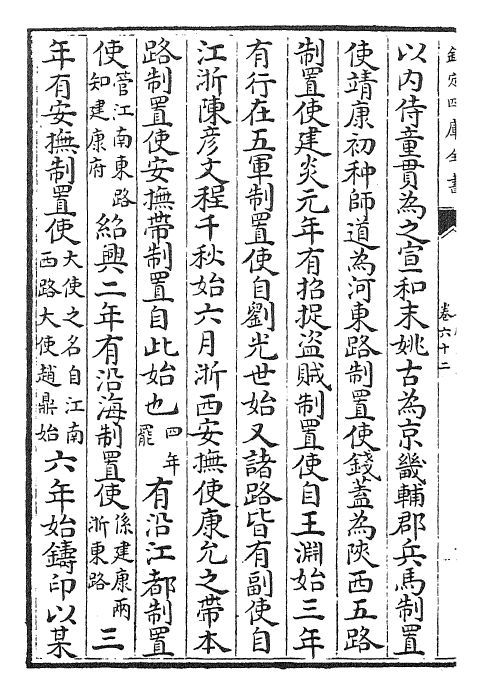 欽定四庫全書
卷六十二
以内侍童貫為之宣和末姚古為京畿輔郡兵馬制置
使靖康初种師道為河東路制置使錢蓋為陜西五路
制置使建炎元年有招捉盜賊制置使自王淵始三年
有行在五軍制置使自劉光世始又諸路皆有副使自
江浙陳彦文程千秋始六月浙西安撫使康允之帶本
路制置使安撫帶制置自此始也四年罷有沿江都制置
使管江南東路知建康府紹興二年有沿海制置使係建康兩浙東路三
年有安撫制置使大使之名自江南西路大使趙鼎始六年始鑄印以某